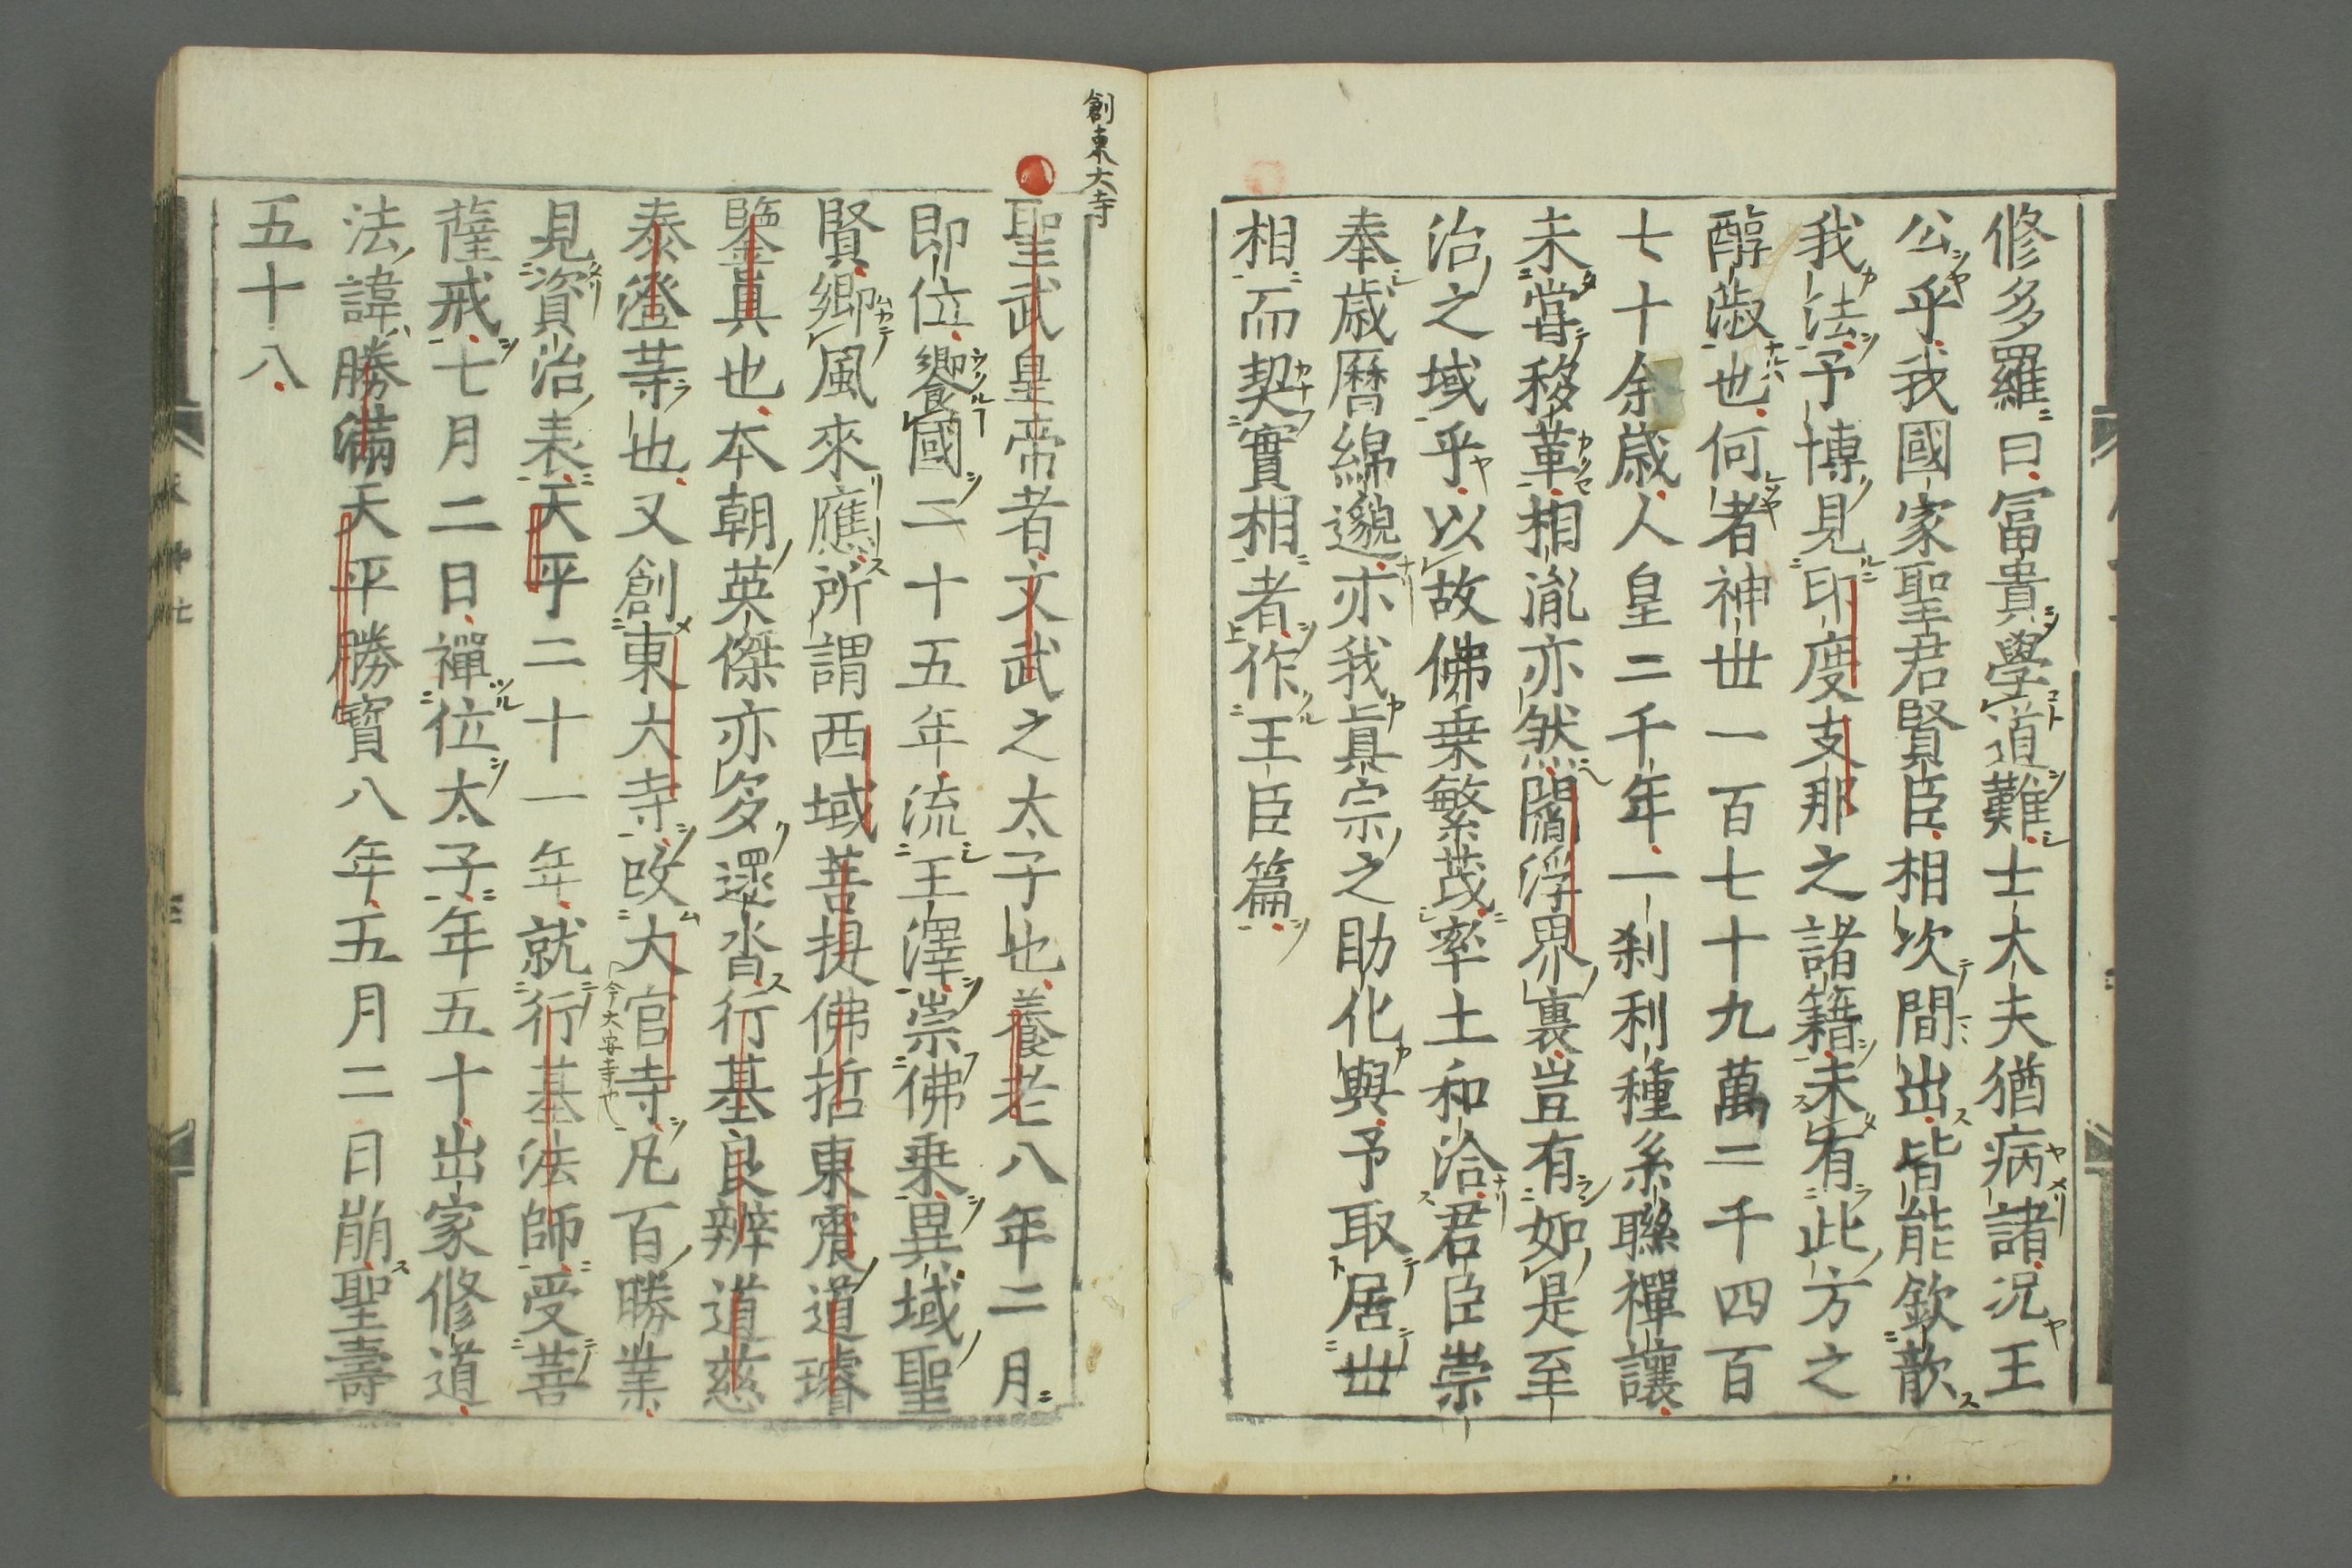 修多羅曰冨貴學道難士大夫猶病諸况王
公乎我國家聖君賢臣相次間出皆能欽歆
我法予博見印度支那之諸籍未有此方之
醇淑也何者神世一百七十九萬二千四百
七十余歳人皇二千年一刹利種系聯禪讓
未嘗移革相胤亦然閻浮界裏豈有如是至
治之域乎以故佛乗繁茂率土和洽君臣崇
奉歳曆綿邈亦我眞宗之助化與予取居世
相而契實相者作王臣篇
創東大寺
聖武皇帝者文武之太子也養老八年二月
即位饗國二十五年流王澤崇佛乗異域聖
賢郷風來應所謂西域菩提佛哲東震道璿
鑒眞也本朝英傑亦多還沓行基良辨道慈
泰澄䓁也又創東大寺改大官寺凡百勝業
今大安寺也
見資治表天平二十一年就行基法師受菩
薩戒七月二日禪位太子年五十出家修道
法諱勝滿天平勝寳八年五月二日崩聖壽
五十八